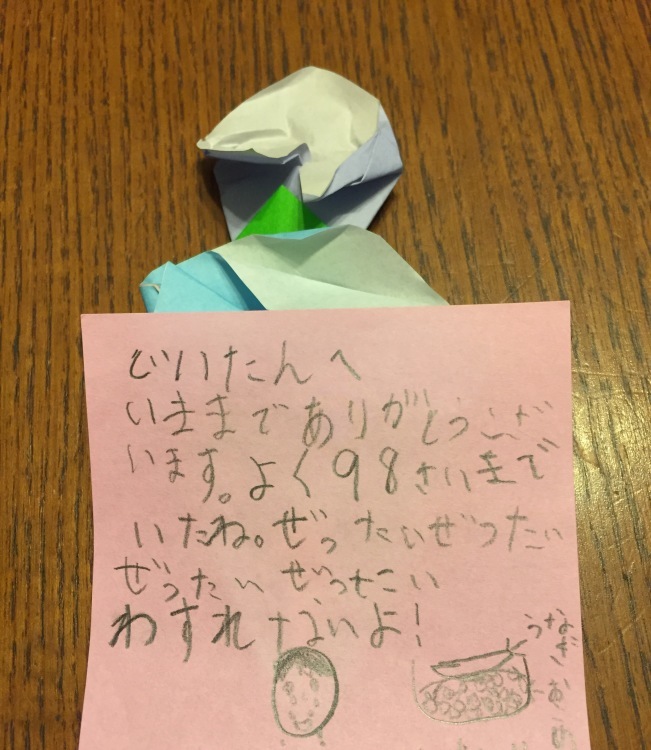 じいたんへ
いままでありがとうござ
います。よく98さいまで
いたね。ぜったいぜったい
ぜったいぜったい
わすれないよ!
うなぎ
おこめ